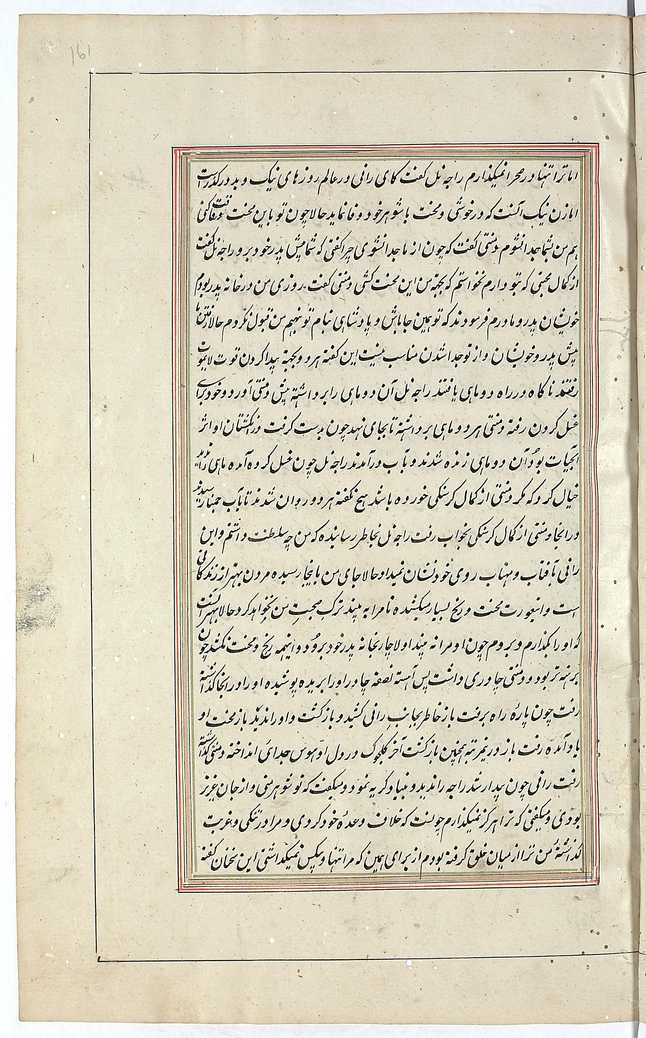 161
اما ترا تنها در صحرا نمیگذارم راجه نل گفت کای رانی در عالم روزهای نیک و بد درگذر است
اما زن نیک آنست که در خوشی و محنت با شوهر خود وفا نماید حالا چون تو با این محنت رفاقت کنی
هم من از شما جدا نشوم دمنتی گفت که چون از ما جدا نشوی چرا گفتی که شما پیش پدر خود برو راجه نل گفت
از کمال محبتی که بتو دارم نخواستم که بجهة من این محنت کشی دمنتی گفت روزی من در خانه پدر بودم
خویشان پدر و مادرم فرمودند که تو همین جا باش و پادشاهی بنام تو نهیم من قبول نکردم حالا رفتن
پیش پدر و خویشان و از تو جدا شدن مناسب نیست این گفته هر دو بجهة پیدا کردن قوت لایموت
رفتند ناگاه در راه دو ماهی یافتند راجه نل آن دو ماهی را برداشته پیش دمنتی آورد و خود برای
غسل کردن رفته دمنتی هر دو ماهی برداشته تا بجای نهد چون بدست گرفت در انگشتان او اثر
آبحیات بود آن دو ماهی زنده شدند و باب درآمدند راجه نل چون غسل کرده آمد ماهی را ندید
خیال کرد که مگر دمنتی از کمال گرسنگی خورده باشد هیچ نگفته هر دو روان شدند تا باب جمنا رسیدند
در انجا دمنتی از کمال گرسنگی بخواب رفت راجه نل بخاطر رسانیده که من چه سلطنت داشتم و این
رانی بافتاب و مهتاب روی خود نشان نمیداد حالا جای من باینجا رسیده مردن بهتر از زندگانی
است و اینعورت محنت و رنج بسیار میکشد تا مرا به بیند ترک محبت من نخواهد کرد حالا بهتر آنست
که او را بگذارم و بروم چون او مرا نه بیند اولا چار بخانه پدر خود برود و اینهمه رنج و محنت نکشد چون
برهنه تر بود و دمنتی چادری داشت پس آهسته نصفه چادر او را بریده پوشیده او را در انجا گذاشته
رفت چون پاره راه برفت باز خاطر بجانب رانی کشید و بازگشت و او را ندید باز محنت او
یاد آمده رفت باز در نمرتبه همچنین بازگشت آخر کلجوک در دل او هوس جدای انداخته دمنتی گذاشته
رفت رانی چون بیدار شد راجه را ندید و بنیاد گریه نمود و میگفت که تو شوهر منی و از جان عزیز
بودی و میگفتی که ترا هرگز نمیگذارم چونست که خلاف وعده خود کردی و مرا در تنگی و غربت
گذاشته من ترا از میان خلق گرفته بودم از برای همین که مرا تنها و بیکس نمیگذاشتی این سخنان گفته